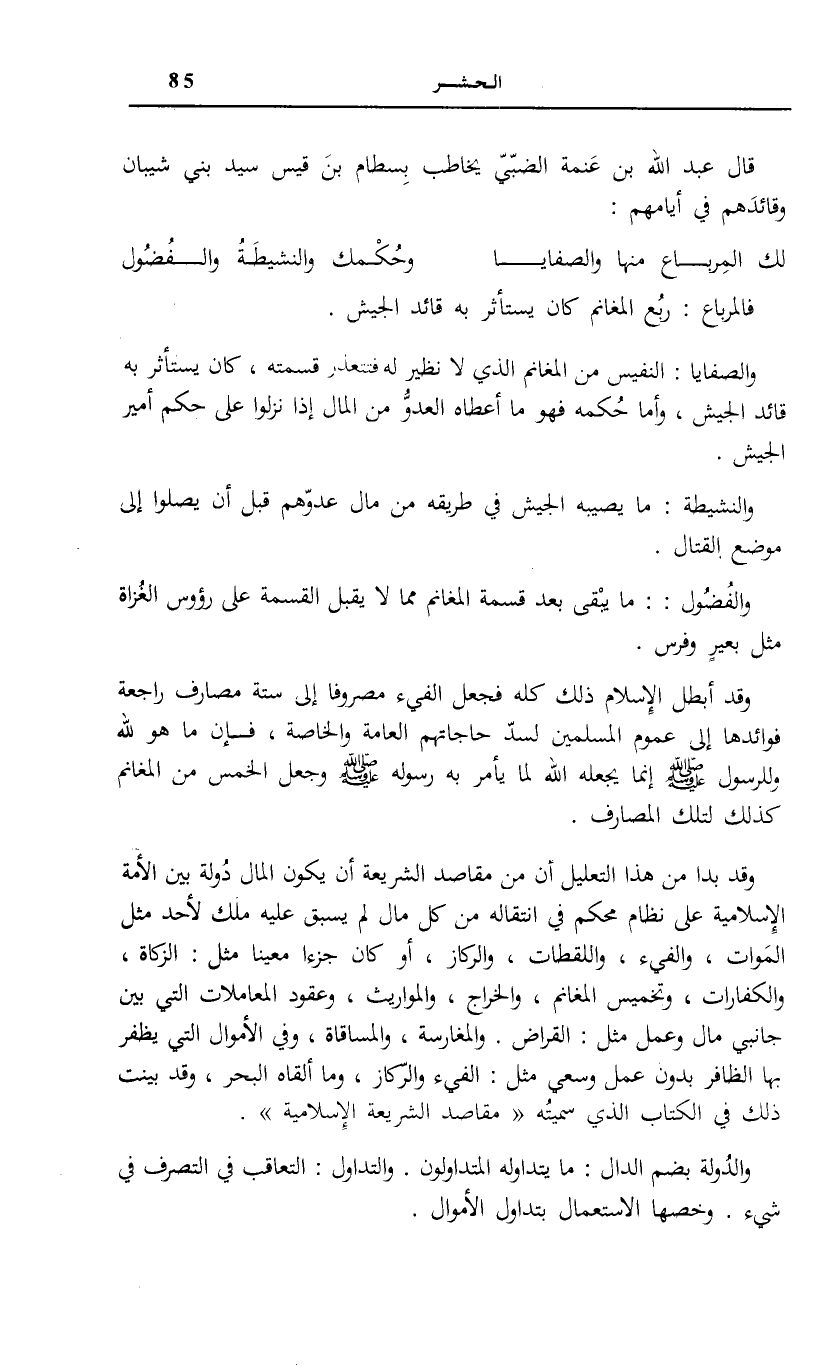 الحشر 85
قال عبد الله بن عَنمة الضبّيّ يخاطب بِسطام بنَ قيس سيد بني شيبان
وقائدَهم في أيامهم :
لك المِربـــاع منها والصفايـــا وحُكْمك والنشيطَةُ والـــفُضُول
فالمرباع : ربُع المغانم كان يستأثر به قائد الجيش .
والصفايا : النفيس من المغانم الذي لا نظير له فتتعذر قسمته ، كان يستأثر به
قائد الجيش ، وأما حُكمه فهو ما أعطاه العدوُّ من المال إذا نزلوا على حكم أمير
الجيش .
والنشيطة : ما يصيبه الجيش في طريقه من مال عدوّهم قبل أن يصلوا إلى
موضع القتال .
والفُضُول : : ما يبْقى بعد قسمة المغانم مما لا يقبل القسمة على رؤوس الغُزاة
مثل بعيرٍ وفرس .
وقد أبطل الإِسلام ذلك كله فجعل الفيء مصروفا إلى ستة مصارف راجعة
فوائدها إلى عموم المسلمين لسدّ حاجاتهم العامة والخاصة ، فــإن ما هو لله
وللرسول ﷺ إنما يجعله الله لما يأمر به رسوله ﷺ وجعل الخمس من المغانم
كذلك لتلك المصارف .
وقد بدا من هذا التعليل أن من مقاصد الشريعة أن يكون المال دُولة بين الأمة
الإِسلامية على نظام محكم في انتقاله من كل مال لم يسبق عليه ملك لأحد مثل
المَوات ، والفيء ، واللقطات ، والركاز ، أو كان جزءا معينا مثل : الزكاة ،
والكفارات ، وتخميس المغانم ، والخراج ، والمواريث ، وعقود المعاملات التي بين
جانبي مال وعمل مثل : القراض . والمغارسة ، والمساقاة ، وفي الأموال التي يظفر
بها الظافر بدون عمل وسعي مثل : الفيء والرّكاز ، وما ألقاه البحر ، وقد بينت
ذلك في الكتاب الذي سميتُه « مقاصد الشريعة الإِسلامية » .
والدُولة بضم الدال : ما يتداوله المتداولون . والتداول : التعاقب في التصرف في
شيء . وخصها الاستعمال بتداول الأموال .